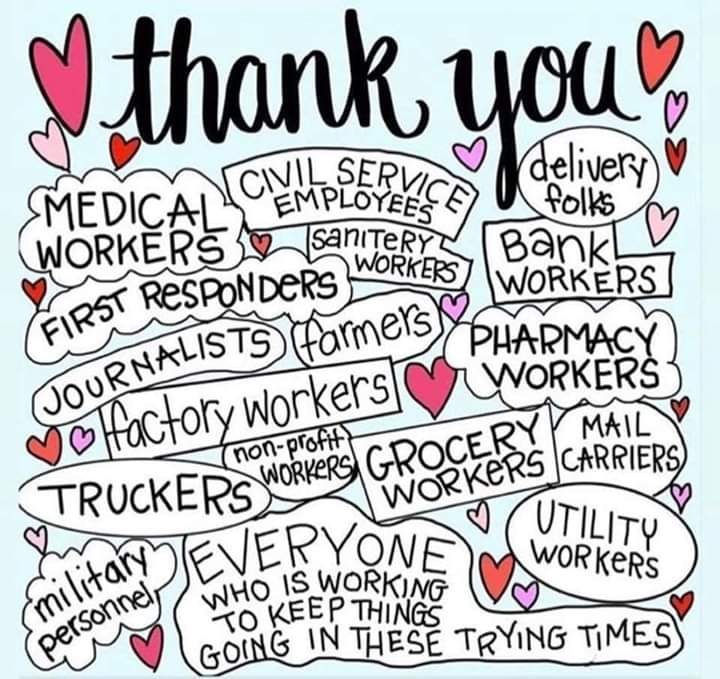 thank you
MEDICAL
WORKERS
CIVIL SERVICE
EMPLOYEES
delivery
folks
SaniTeRY
WORKERS
Bank
WORKERS
FIRST ResPONDeRS
JOURNALISTS
farmers
PHARMACY
WORKERS
factory workers
non-profit
WORKERS
GROCERY
WORKeRS
MAIL
CARRIERS
TRUCKERS
UTILITY
WORKeRS
military
personnel
EVERYONE
WHO IS WORKING
TO KEEP THINGS
GOING IN THESE TRYING TiMES